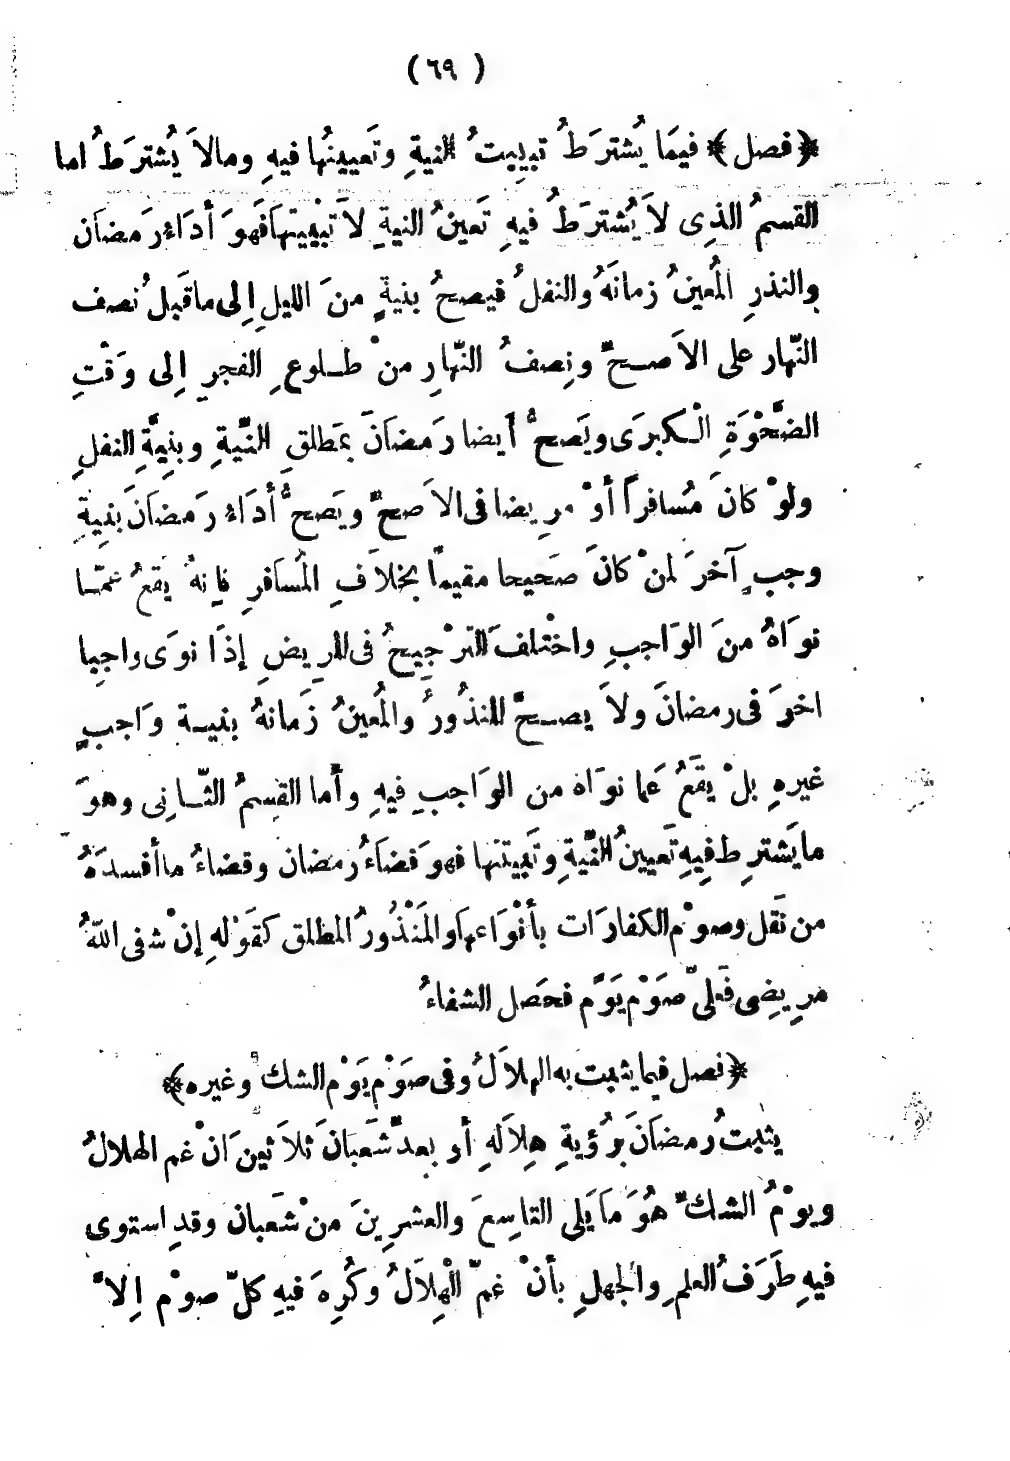 ( ٦٩ )
﴿ فصل ﴾ فيمَا يُشترَطُ تبييتُ النيةِ وتَعيينُها فيهِ ومالاَ يُشترَطُ اما
القسمُ الذِى لاَ يُشترَطُ فيهِ تَعينُ النيةِ لاَ تبْييتها فَهوَ أدَاءُ رَمضانَ
والنذرِ المُعينُ زمانَهُ والنفلُ فيصحُ بنيةٍ منَ الليلِ إِلى ماقَبلُ نصف
النَّهار على الاَصـحِّ ونِصفُ النَّهارِ من ْ طـلوعِ الفجرِ إِلى وَقْتِ
الضَّحْوَةِ الْـكبرَى ويَصحُّ أيضا رَمضانَ بمَطلقِ النِّيةِ وبنِيَّةِ النفلِ
ولوْ كانَ مُسافراً أوْ مرِيضا فى الاَصحِّ ويَصحُّ أدَاءُ رَمضانَ بَنِيةِ
وجبٍ آخرَ لمنْ كانَ صَحيحا مقيماً بخلاَفِ المُسَافرِ فإنهُ يقَعُ عمّـا
نوَاهُ منَ الوَاجبِ واخْتلفَ الترْجِيحُ فى المرِيضِ إذَا نوَى واجبا
اخرَ فى رمضانَ ولاَ يصـحُّ المنذُورُ والمُعينُ زَمانهُ بنيـة وَاجبٍ
غيرهِ بلْ يقَعُ عَما نوَاه من الوَاجبِ فيهِ وأما القسمُ الثّـانِى وهوَ
مايَشترِط فِيهِ تَعيينُ النِّيةِ وتَبيتها فهوَ قضَاءُ رمضان وقضاءُ ما أفسدَهُ
من نَفل وصوْم الكفارَات بأنْوَاعها والمَنْذُورُ المطلق كقَوْلهِ إنْ شفى اللّهُ
مرِيضِى فَعلىّ صَوْم يَوَّم فحَصل الشفاءُ
﴿ فصل فيما يثبت به الهلاَلُ وفى صَوْم يَوْم الشك وغيره ﴾
يثبتُ رمضَانَ برُؤيةِ هِلاَلهِ أو بعدِّ شَعبَانَ ثلاَثينَ انْ غم الهلالُ
ويوْمُ الشكِّ هوَُ مَا يَلى التاسِعَ والعشرِينَ منْ شعَبان وقدِ استوى
فيهِ طَرَفُ العلمِ والجهلِ بأنْ غمّ الْهِلاَلُ وَكُرِهَ فيهِ كلّ صوْم إلاَّ